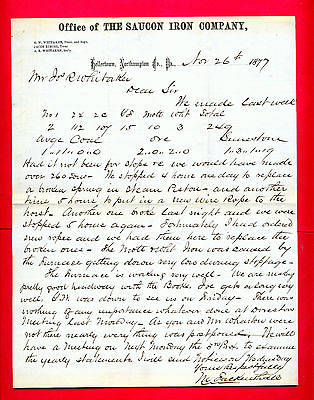 Office of THE SAUCON IRON COMPANY,
Hellertown, Northampton Co., Pa., Nov 26th 1877
Mr Jos R Whitaker
Dear Sir
We made last week
No 1 2x 2c Mott wht Total
2 112 107 15 10 3 249
Avge Coal ore Limestone
Had it not been for stops &c we would have made
over 260 tons. We stopped 4 hours one day to replace
a broken spring in Steam Piston and another
time 5 hours to put in a new wire Rope to the
hoist. Another one broke last night and we were
stopped 5 hours again. Fortunately I had ordered
new ropes and we had them here to replace the
broken ones. The Mott & white was caused by
the furnace getting down very low during stoppage.
The furnace is working very well. We are making
pretty good headway with the Books. Joe gets along very
well. was down to see us on Friday. There was
nothing of any importance whatever done at Directors
Meeting last Monday. As you and Mr Wharton were
not there nearly everything was postponed. We will
have a meeting on Next Monday the 3rd to examine
the yearly statements. I will send Notices on Wednesday
Yours Respectfully